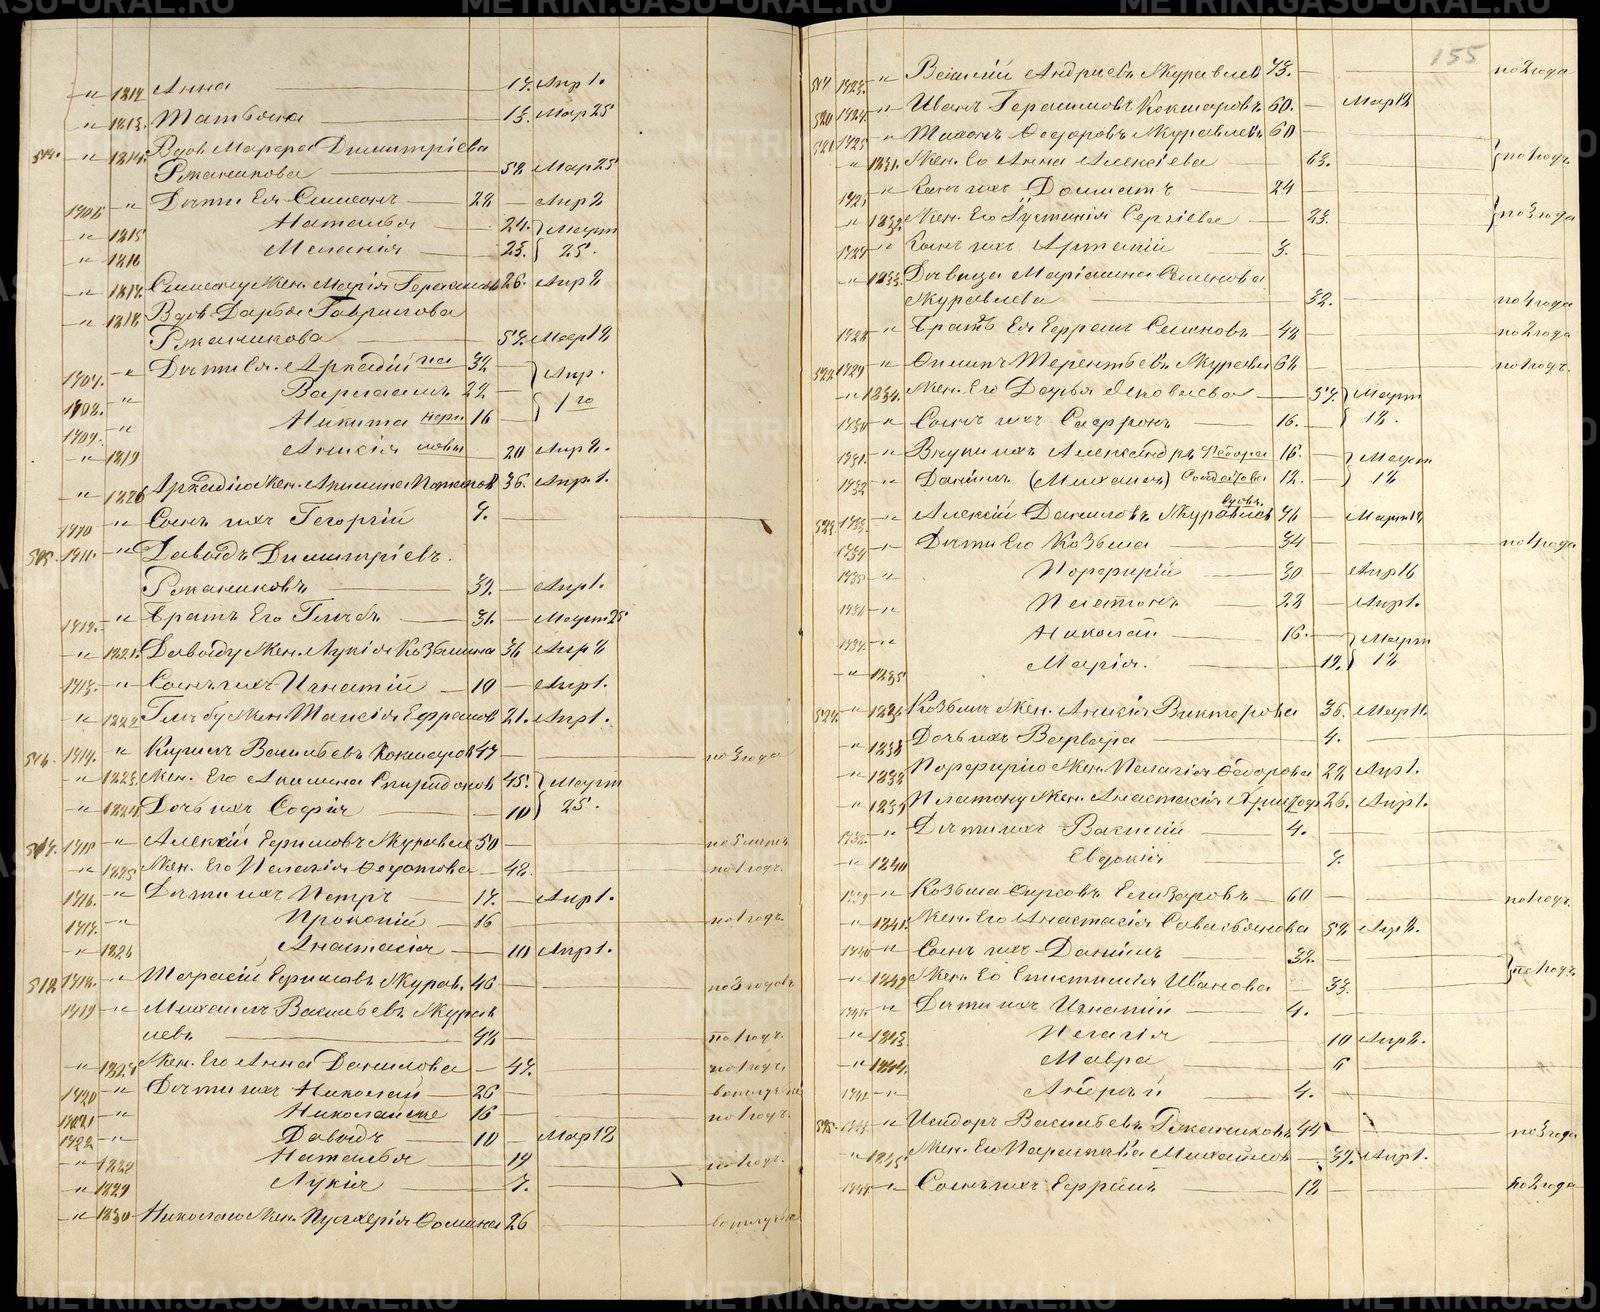 " 1812 Анна 17. Апр 1.
" 1813. Татьяна 13. Мар 25
514. " 1814. Вдов. Марѳа Димитріева
Ржаникова 52 Мар 25
1706 " Дѣти Ея Симеонъ 22 Апр 2
" 1815 Наталья 24. } Март
" 1816 Меланія 23. } 25.
" 1817. Симеону Жен. Марія Герасимов 26. Апр 2
" 1818 Вдов. Дарья Гаврилова
Ржаникова 57. Мар 12
1707. " Дѣти Ея. Аркадій 32 } Апр.
1708. " Варлаамъ 22 } 1го
1709. " Никита 16
" 1819 Анисія 20 Апр 2.
" 1820 Аркадію Жен. Акилина 36. Апр. 1.
1710 " Сынъ ихъ Георгій 7.
515. 1711. " Давыдъ Димитріевъ.
Ржаниковъ 39. Апр 1.
1712. " Братъ Его Глѣбъ 31. Март 25
" 1821. Давыду Жен. Лукія Козьмина 36 Апр 2
1713. " Сынъ ихъ Игнатій 10 Апр 1.
" 1822 Глѣбу Жен. Таисія Ефремов 21. Апр 1.
516. 1714. " Кирилъ Васильевъ Кокшаров 47 по 3 года
" 1823. Жен. Его Акилина Спиридонов 45. } Март
" 1824 Дочь ихъ Софія 10 } 25.
517. 1715 " Алексій Ефимовъ Журавле 50 по 5 лѣтъ
" 1825 Жен. Его Пелагія Ѳедотова 48. по 1 годъ.
1716. " Дѣти ихъ Петръ 17. Апр 1.
1717. " Прокопій 16 по 1 годъ
" 1826 Анастасія 10 Апр 1.
518. 1718. " Тарасій Ефимовъ Журав. 46 по 3 года
1719 " Михаилъ Васильевъ Журав
левъ 42 по 1 годъ.
" 1827 Жен. Его Анна Данилова 47. по 1 годъ.
1720 " Дѣти ихъ Николай 26
1721 " Николай же 16 по 1 годъ.
1722 " Давыдъ 10 Мар 12
" 1828 Наталья 19 по 1 годъ.
" 1829 Лукія 7.
" 1830 Николаю Жен. Пулхерія Ѳомина 26
155
519 1723. " Василій Андреевъ Журавлев 73. по 2 года
520 1724. " Иванъ Герасимовъ Кокшаровъ. 60. Мар 12
521. 1725 " Тихонъ Ѳедоровъ Журавлевъ 60
" 1831. Жен. Его Анна Алексіева 63. } по 1 годъ.
1726 " Сынъ ихъ Домнатъ 24
" 1832 Жен. Его Іустинія Сергіева 23. } по 3 года
1727 " Сынъ ихъ Артемій 3.
" 1833. Дѣвица Маріамна Семенова
Журавлева 32. по 4 года
1728 " Братъ Ея Ефремъ Семеновъ 42 по 2 года
522 1729 " Ѳилипъ Терентьевъ Журавлев 62 по 1 годъ.
" 1834. Жен. Его Дарья Яковлева 57. } Март
1730 " Сынъ ихъ Сафронъ 16. } 12.
1731. " Внуки ихъ Александръ 16. } Март
1732 " Даніилъ (Михаилъ) 12. } 12
523. 1733. " Алексій Даниловъ Журавлев вдовъ. 76 Март 12
1734 " Дѣти Его Козьма 34 по 4 года
1735 " Порфирій 30 Апр 16
1736 " Платонъ 22 Апр 1.
1737. " Николай 16. } Март
" 1835 Марія. 19. } 12
524. " 1836 Козьмѣ Жен. Анисія Викторова 36. Мар 12.
" 1838 Дочь ихъ Варвара 4.
" 1838 Порфирію Жен. Пелагія Ѳедорова 22 Апр 1.
" 1839 Платону Жен. Анастасія 26. Апр 1.
1738. " Дѣти ихъ Василій 4.
" 1840 Евдокія 7.
1739 " Козьма Фирсовъ Елизаровъ 60 по 1 годъ.
" 1841. Жен. Его Анастасія Савастьянова 52 Апр 2.
1740 " Сынъ ихъ Даніилъ 32.
" 1842 Жен. Его Епистимія Иванова 33. } по 1 годъ
1741 " Дѣти ихъ Игнатій 4.
" 1843 Пелагія 10 Апр 2.
" 1844. Мавра 6
1742 " Андрей 4.
525. 1743 " Исидоръ Васильевъ Ржаниковъ 44 по 3 года
" 1845. Жен. Его Параскева Михайлов 39. Апр 1.
1744 " Сынъ ихъ Ефремъ 12 по 2 года